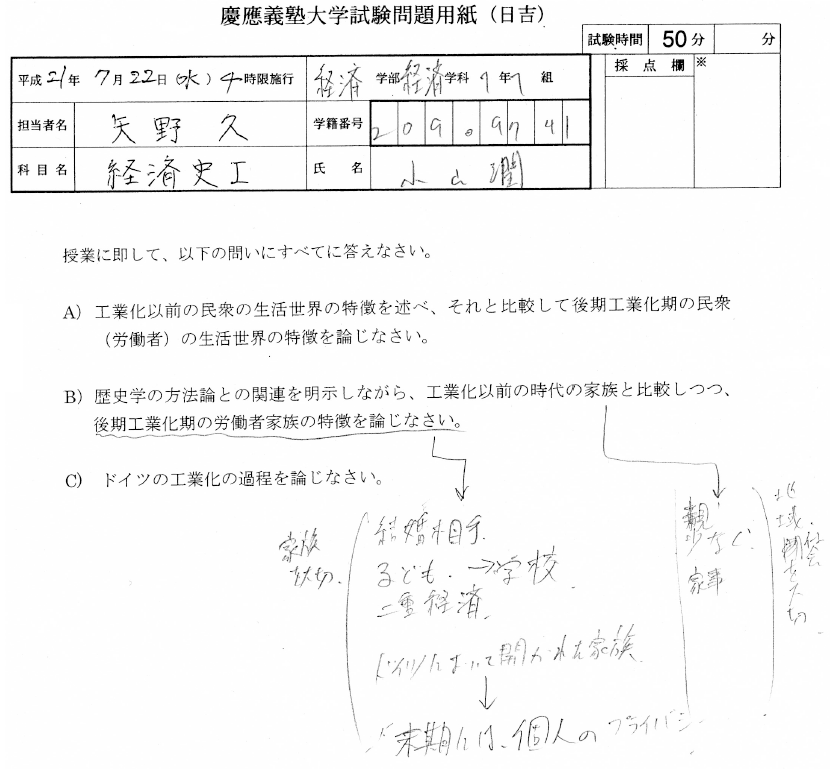 慶應義塾大学試験問題用紙（日吉）
試験時間 50分 分
平成21年 7月22日（水）4時限施行 経済 学部 経済 学科 1年7組
採点欄 ※
担当者名 矢野 久 学籍番号
科目名 経済史I 氏名 小山 潤
授業に即して、以下の問いにすべてに答えなさい。
A）工業化以前の民衆の生活世界の特徴を述べ、それと比較して後期工業化期の民衆
（労働者）の生活世界の特徴を論じなさい。
B）歴史学の方法論との関連を明示しながら、工業化以前の時代の家族と比較しつつ、
後期工業化期の労働者家族の特徴を論じなさい。
C) ドイツの工業化の過程を論じなさい。
家族
大切.
結婚相手
子ども. →学校
二重経済
よって開かれた家族
末期には、個人のプライバシ
家事
地域.